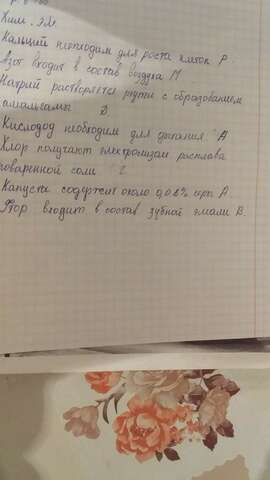 Хим. Эл.
Кальций необходим для роста клеток Р.
Азот входит в состав воздуха М
Натрий растворяется ртути с образованием
амальгамы D.
Кислород необходим для дыхания А
Хлор получают электролизом расплава
поваренной соли
Капуста содержит около 0,08% серы А.
Фтор входит в состав зубной эмали В.